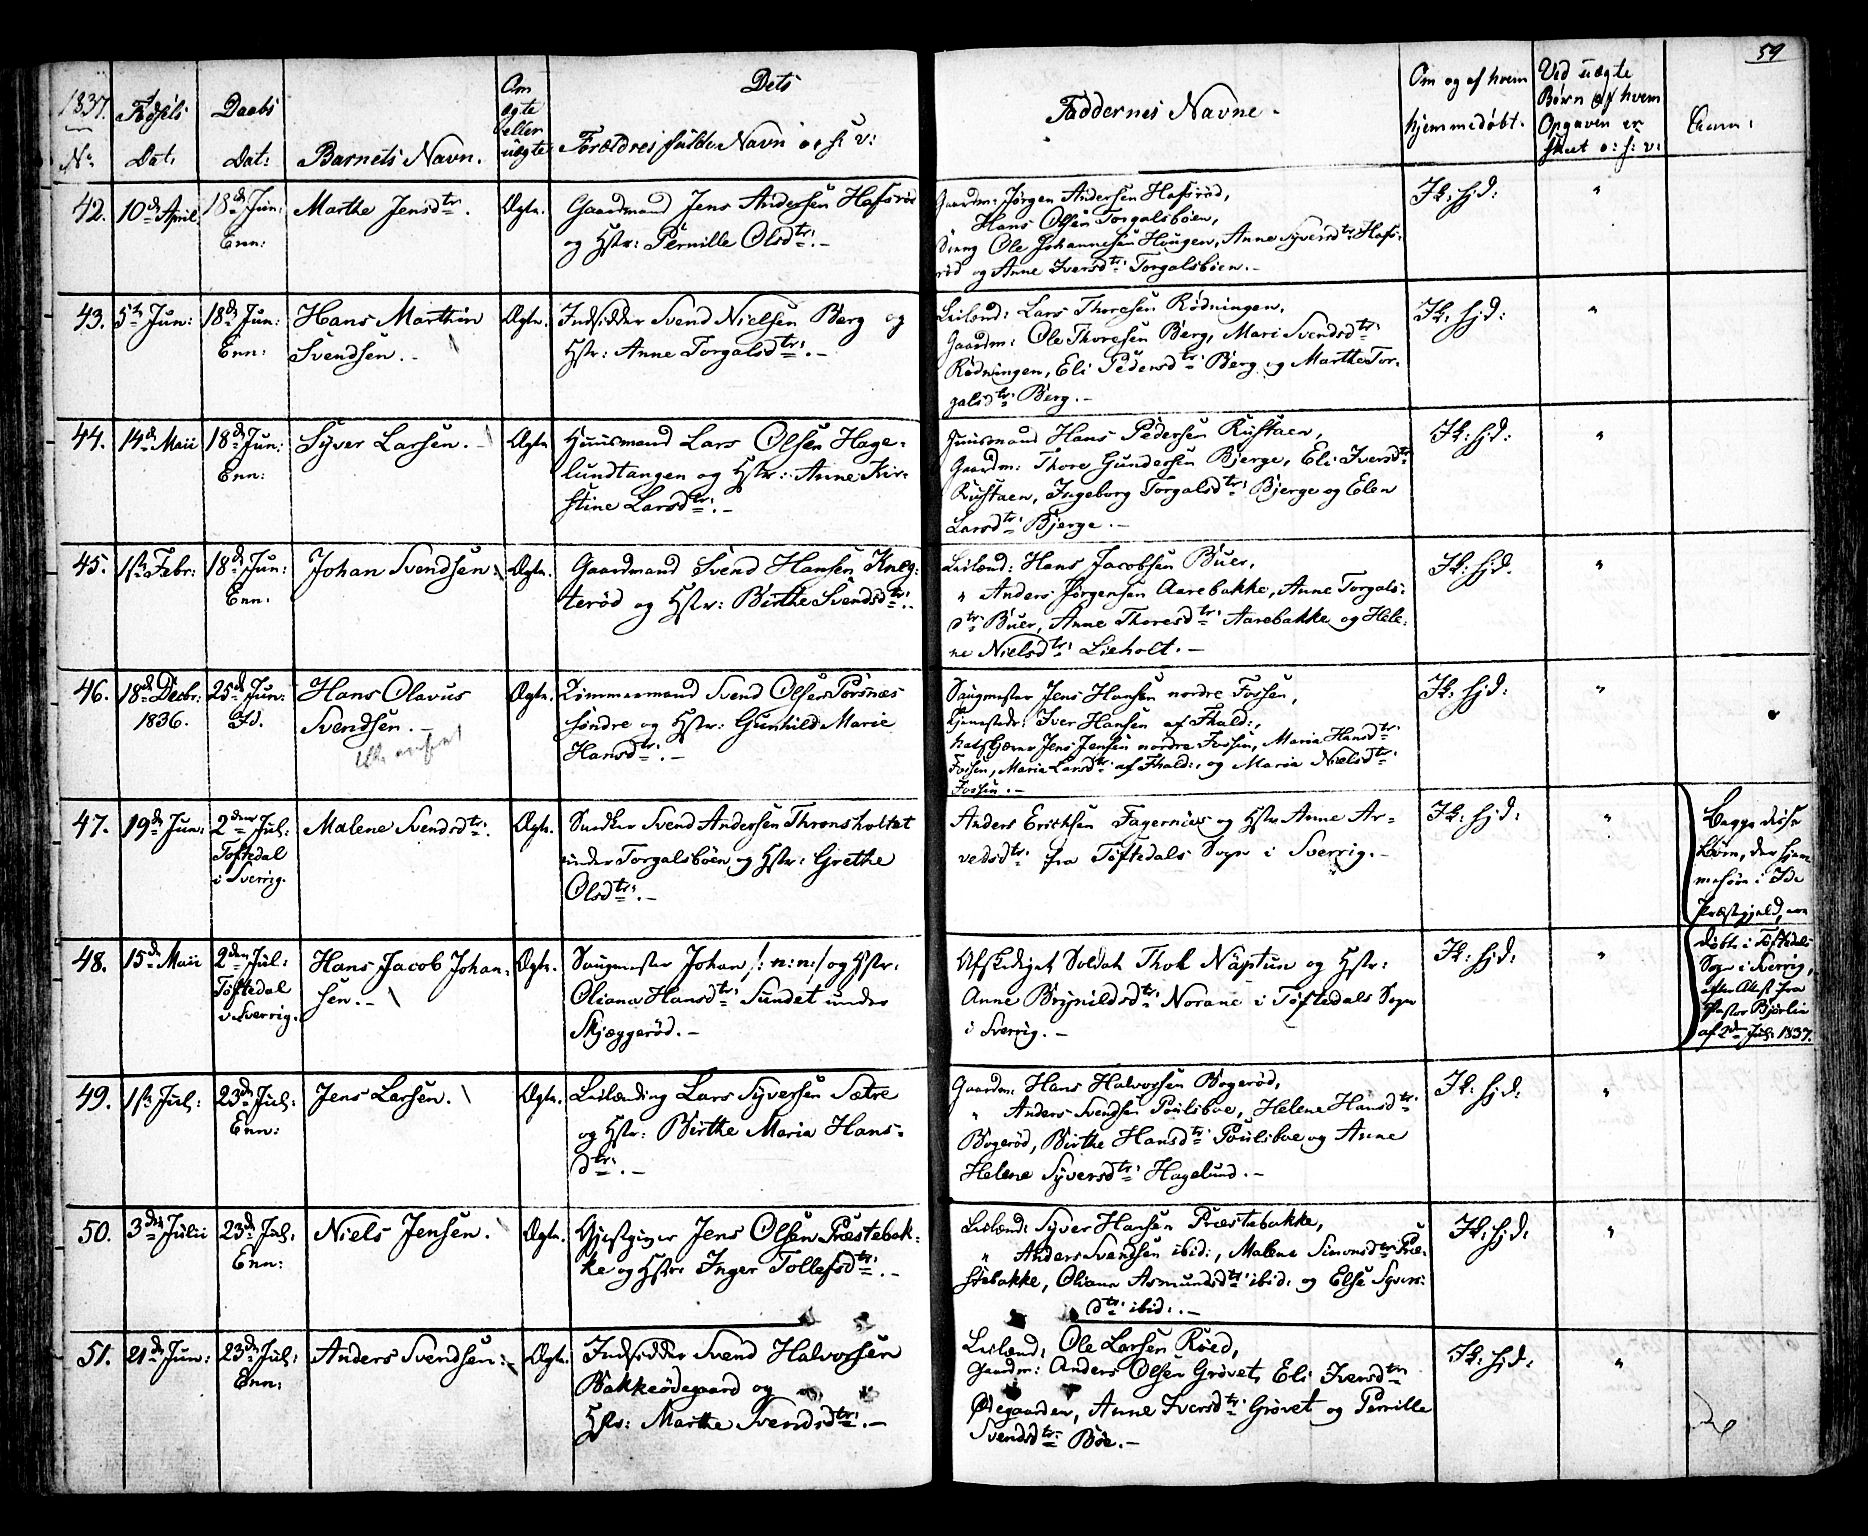 59
1837.
No
Fødsels
Dat:
Daabs
Dat:
Barnets Navn.
Om
ægte
eller
uægte
Dets
Forældres fulde Navn o: s: v:
Faddernes Navne.
Om og af hvem
hjemmedøbt.
Ved uægte
Børn af hvem
Opgaven er
skeet o: s: v:
42. 10de April
18de Jun:
Enn:
Marthe Jensdtr.
Ægte.
Gaardmand Jens Andersen Hafsrød
og Hstr: Pernille Olsdtr: –
Gaardm: Jørgen Andersen Hafsrød,
Hans Olsen Torgalsbøen,
Dreng Ole Johannesen Hougen, Anne Syversdtr: Hafs-
rød og Anne Iversdtr: Torgalsbøen. –
Ik: hj: d:
"
43. 5te Jun:
18de Jun:
Enn:
Hans Marthin
Svendsen. –
Ægte.
Indsidder Svend Nielsen Berg og
Hstr: Anne Torgalsdtr: –
Leilænd: Lars Thoresen Rødningen,
Gaardm: Ole Thoresen Berg, Mari Svendsdtr:
Rødningen, Eli Pedersdtr: Berg og Marthe Tor-
galsdtr: Berg. –
Ik: hj: d:
"
44. 14de Maii
18de Jun:
Enn:
Syver Larsen. –
Ægte
Huusmand Lars Olsen Hage-
lundtangen og Hstr: Anne Kir-
stine Larsdtr: –
Huusmand Hans Pedersen Rustaen,
Gaardm: Thore Gundersen Bjerge, Eli Iversdtr:
Rustaen, Ingeborg Torgalsdtr: Bjerge og Elen
Larsdtr: Bjerge. –
Ik: hj: d:
"
45. 1ste Febr:
18de Jun:
Enn:
Johan Svendsen.
Ægte.
Gaardmand Svend Hansen Kneg-
terød og Hstr: Birthe Svendsdtr: –
Leilænd: Hans Jacobsen Buer,
" Anders Jørgensen Aarebakke, Anne Torgals-
dtr: Buer, Anne Thoresdtr: Aarebakke og Hele-
ne Nielsdtr: Lieholt. –
Ik: hj: d.
"
46. 18de Decbr:
1836.
25de Jun:
Id.
Hans Olavus
Svendsen. –
Ægte.
Tømmermand Svend Olsen Pørsnæs
søndre og Hstr: Gunhild Marie
Hansdtr: –
Saugmester Jens Hansen nordre Fossen,
Tjenestedr: Iver Hansen af Fhald:,
Jens Jensen nordre Fossen, Maria Hansdtr:
Fossen, Maria Larsdtr: af Fhald:, og Maria Nielsdtr:
Fossen. –
Ik: hj: d:
"
47. 19de Jun:
2den Jul:
Tøftedal
i Sverrig.
Malene Svendsdtr:
Ægte.
Snedker Svend Andersen Thronsholtet
under Torgalsbøen og Hstr: Grethe
Olsdtr: –
Anders Ericksen Fagernæs og Hstr Anne Ar-
vedsdtr: fra Tøftedals Sogn i Sverrig. –
Ik: hj: d:
"
Begge disse
Børn, der hjem-
mehøre i Ide
Præstegjeld, ere
48. 15de Maii
2den Jul:
Tøftedal
i Sverrig.
Hans Jacob Johan-
sen. –
Ægte.
Saugmester Johan /: n: n: / og Hstr:
Oliana Hansdtr: Sundet under
Skjæggerød. –
Afskediget Soldat Thol Næptun og Hstr:
Anne Brynildsdtr: Norane i Tøftedals Sogn
i Sverrig. –
Ik: hj: d:
"
døbte i Tøftedals
Sogn i Sverrig,
efter Atest fra
Pastor Bjørlin
af 2den Jul: 1837.
49. 1ste Jul:
23de Jul:
Enn:
Jens Larsen.
Ægte.
Leilænding Lars Syversen Sætre
og Hstr: Birthe Maria Hans-
dtr: –
Gaardm: Hans Halvorsen Bogerød,
" Anders Svendsen Poulsboe, Helene Hansdtr:
Bogerød, Birthe Hansdtr: Poulsboe og Anne
Helene Syversdtr: Hagelund. –
Ik: hj: d:
"
50. 3die Julii
23de Jul:
Enn:
Niels Jensen.
Ægte.
Gjestgiver Jens Olsen Præstebak-
ke og Hstr: Inger Tollefsdtr: –
Leilænd: Syver Hansen Præstebakke,
" Anders Svendsen ibid:, Malene Simonsdtr: Præ-
stebakke, Oliana Asmundsdtr: ibid: og Else Syvers-
dtr: ibid: –
Ik: hj: d:
"
51. 21de Jun:
23de Jul:
Enn:
Anders Svendsen.
Ægte.
Indsidder Svend Halvorsen
Bakkeødegaard og
Hstr: Marthe Svendsdtr: –
Leilænd: Ole Larsen Røed,
Gaardm: Anders Olsen Grøvet, Eli Iversdtr:
Ødegaarden, Anne Iversdtr: Grøvet og Pernille
Svendsdtr: Bøe. –
Ik: hj: d:
"